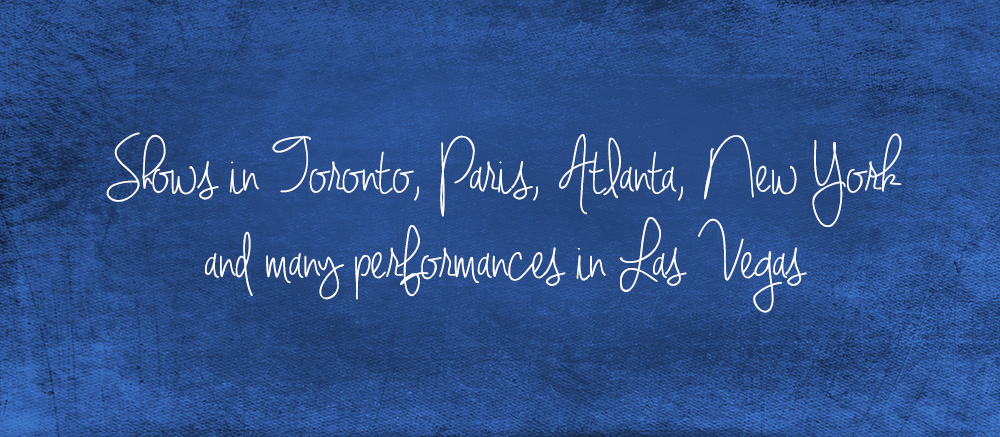 Shows in Toronto, Paris, Atlanta, New York
and many performances in Las Vegas